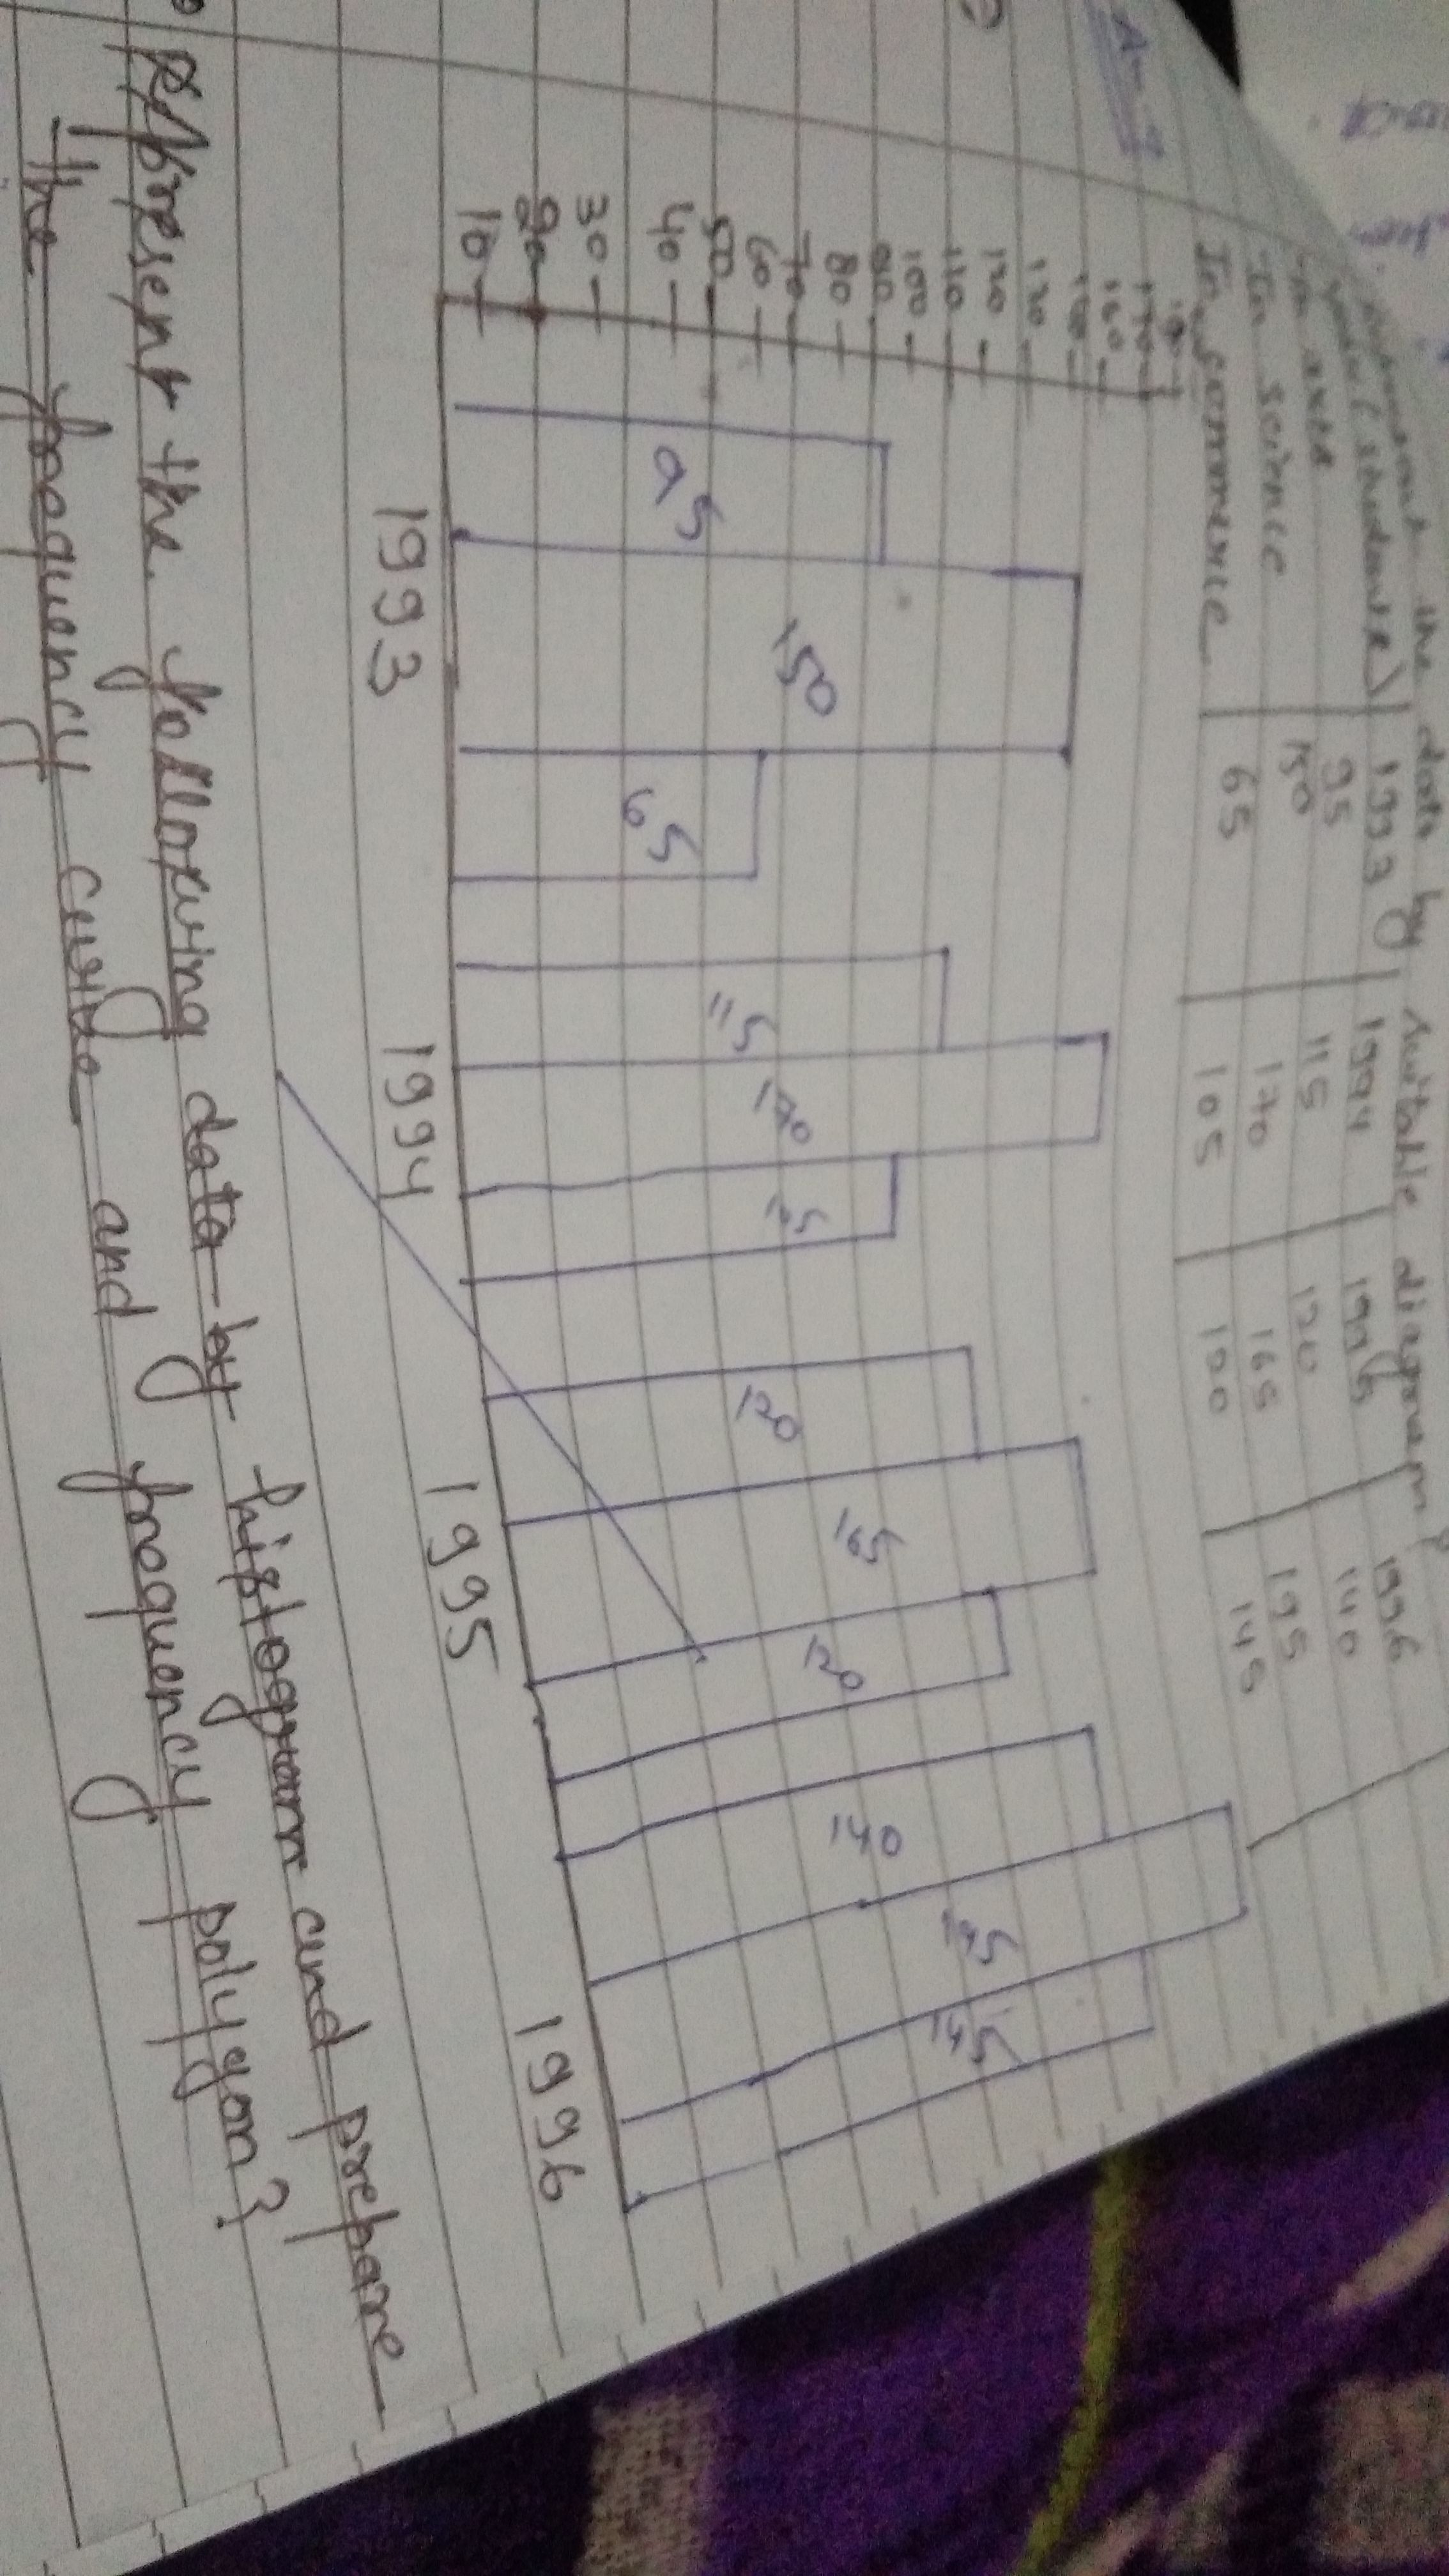 the data by suitable diagram?
year (students) 1993 1994 1995 1996
In arts 95 115 120 140
In science 150 170 165 195
In commerce 65 105 100 145
A-
170
160
130
120
110
100
90
80
70
60
50
40
30
20
10
95 150 65 115 170 120 165 120 140 195 145
1993 1994 1995 1996
Represent the following data by histogram and prepare
the frequency curve and frequency polygon?